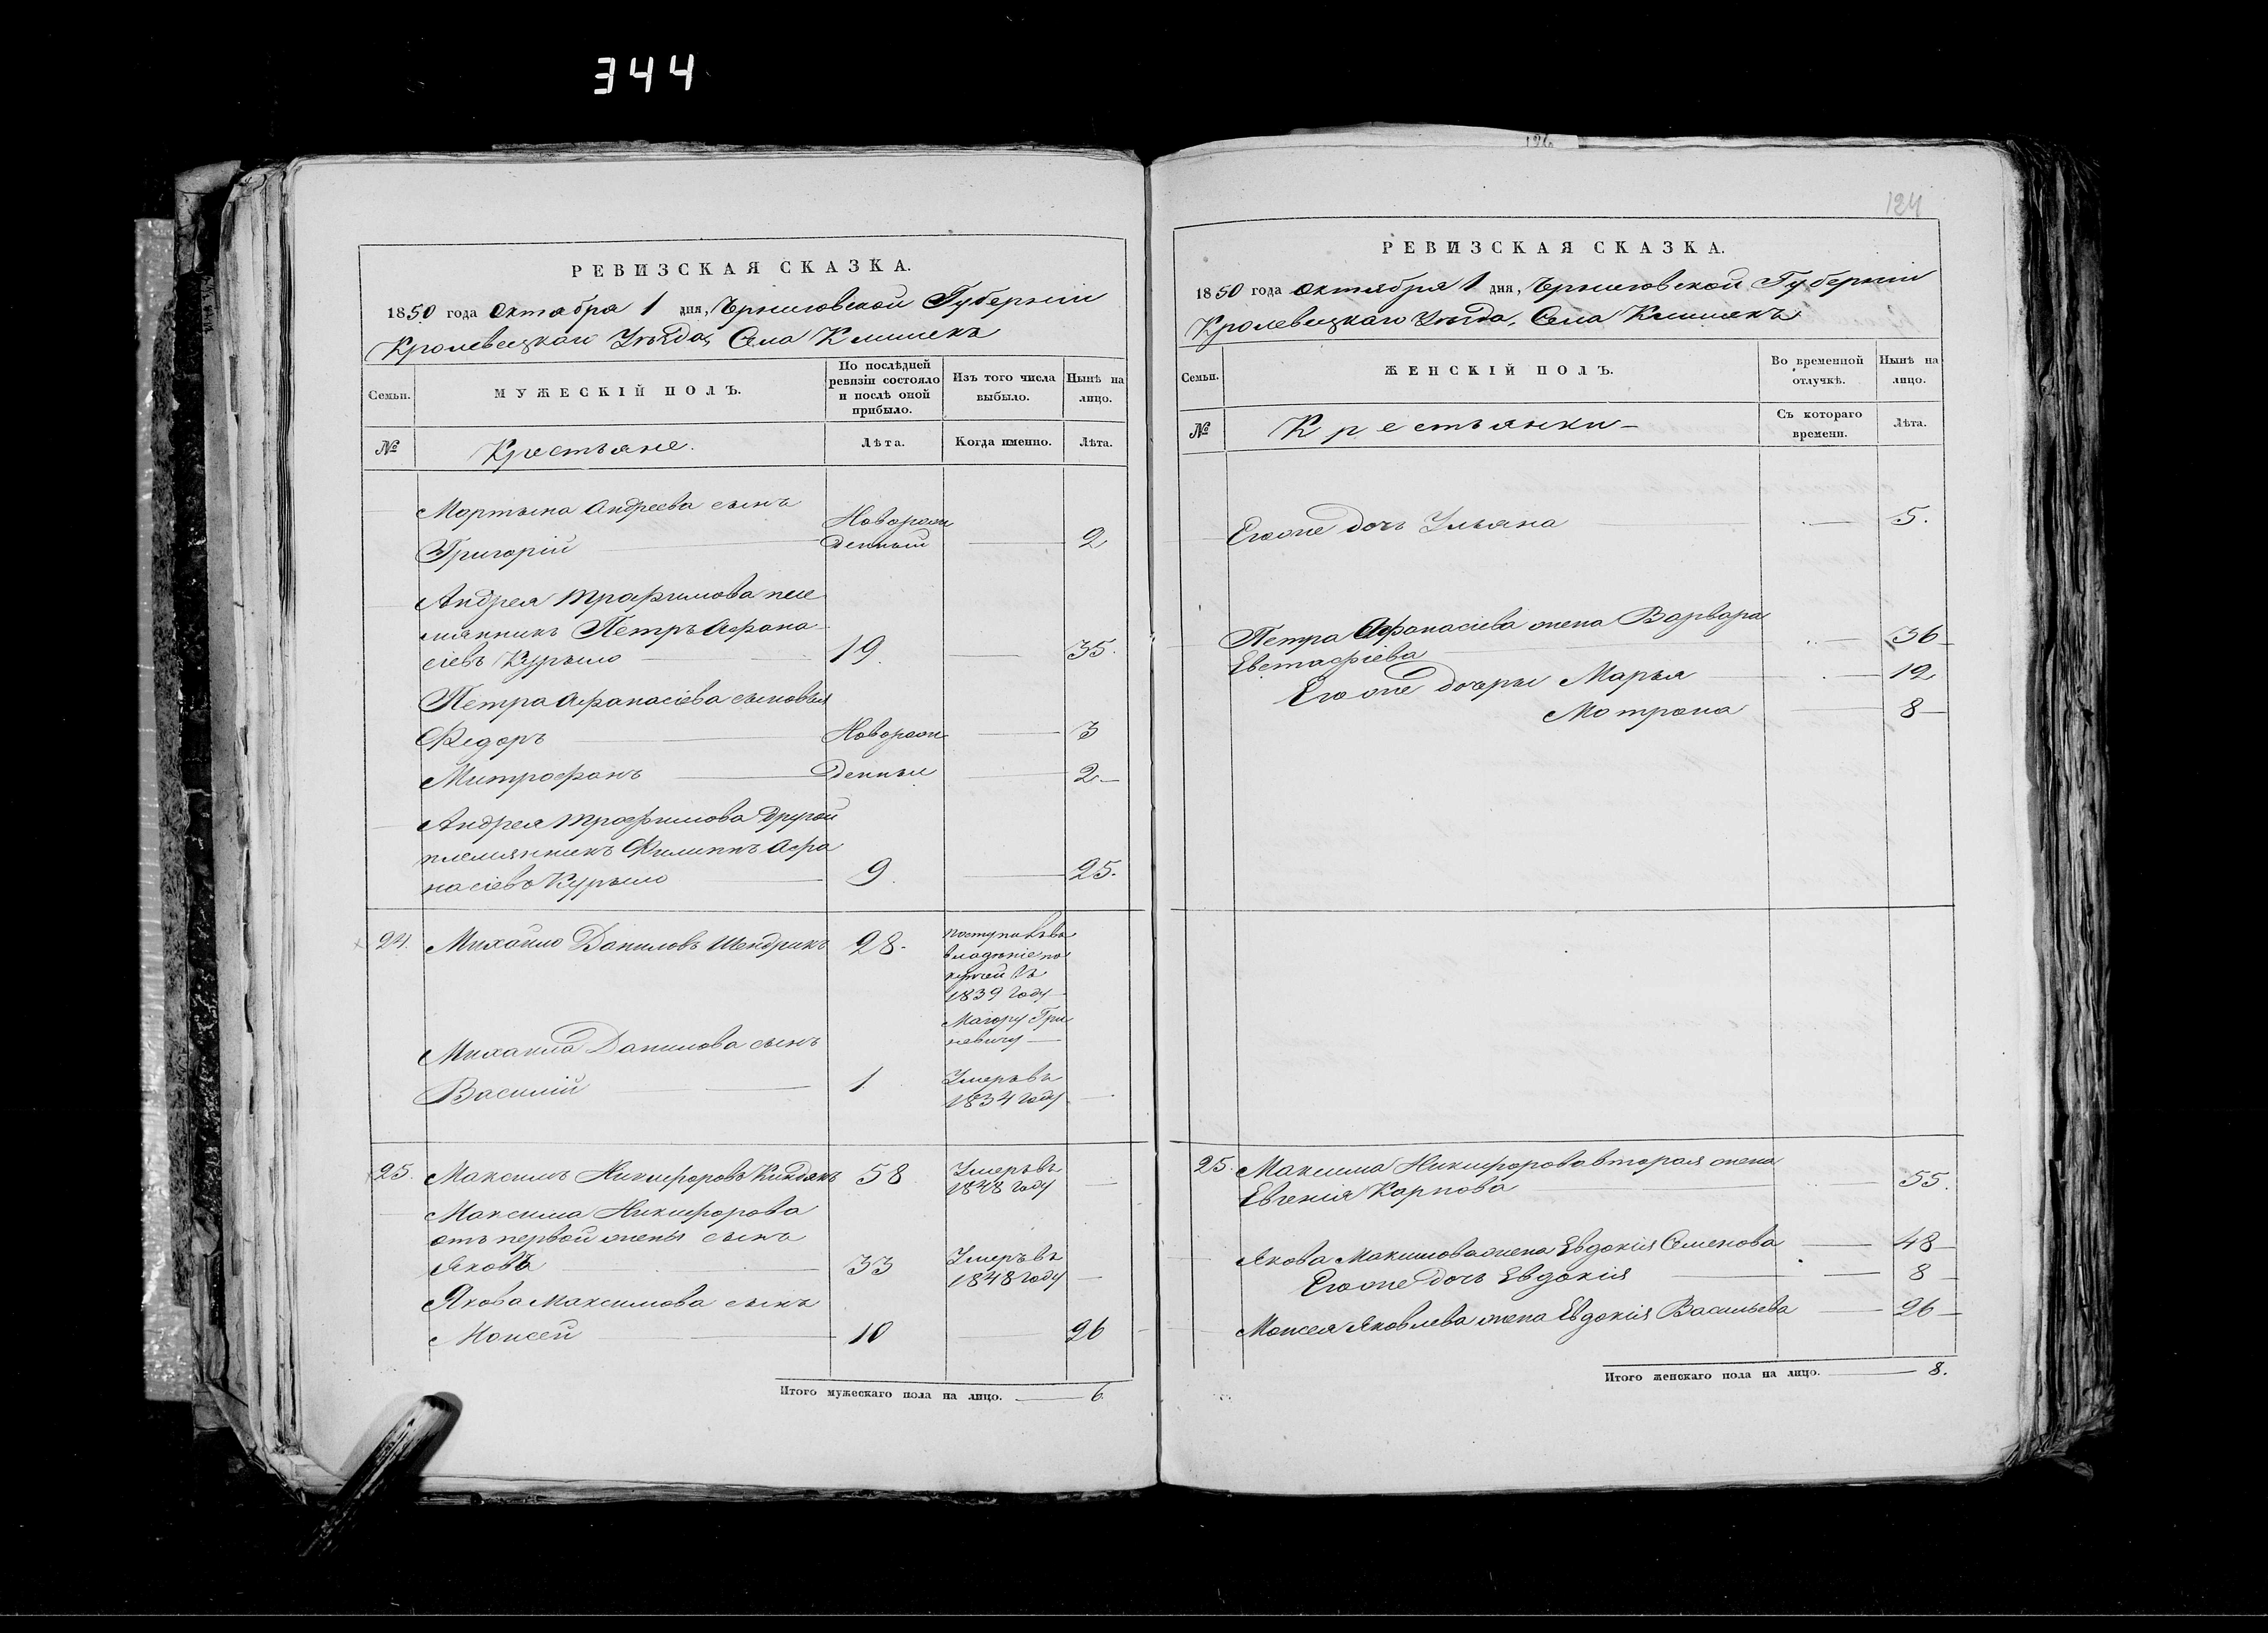 344
РЕВИЗСКАЯ СКАЗКА.
1850 года Октября 1 дня, Черниговской Губерніи
Кролевецкаго Уѣзда, Села Клишекъ
Семьи.
МУЖЕСКІЙ ПОЛЪ.
По послѣдней ревизіи состояло и послѣ оной прибыло.
Изъ того числа выбыло.
Нынѣ на лицо.
№
Крестьяне.
Лѣта.
Когда именно.
Лѣта.
Мартына Андреева сынъ
Григорій Новорож
денный 2
Андрея Трафимова пле
мянникъ Петръ Афана
сіевъ Курыло 19. 35.
Петра Афанасіева сыновья
Федоръ Новорож 3
Митрофанъ денные 2
Андрея Трафимова другой
племянникъ Филиппъ Афа
насіевъ Курыло 9. 25.
24. Михайло Даниловъ Шендрикъ 28.
поступилъ во
владѣніе по
купчей въ
1839 году
Маіору Гри
невичу
Михаила Данилова сынъ
Василій 1. Умеръ въ
1834 году
25. Максимъ Никифоровъ Киндякъ 58 Умеръ въ
1848 году
Максима Никифорова
отъ первой жены сынъ
Яковъ 33 Умеръ въ
1848 году
Якова Максимова сынъ
Моисей 10 26
Итого мужескаго пола на лицо. 6.
124
РЕВИЗСКАЯ СКАЗКА.
1850 года Октября 1 дня, Черниговской Губерніи
Кролевецкаго Уѣзда, Села Клишекъ
Семьи.
ЖЕНСКІЙ ПОЛЪ.
Во временной отлучкѣ.
Нынѣ на лицо.
№
Крестьянки
Съ котораго времени.
Лѣта.
Его же дочь Ульяна 5.
Петра Афанасіева жена Варвара
Евстафіева 36
Его же дочери Марья 12
Мотрона 8
25. Максима Никифорова вторая жена
Евгенія Карпова 55.
Якова Максимова жена Евдокія Семенова 48
Его же дочь Евдокія 8
Моисея Яковлева жена Евдокія Васильева 26
Итого женскаго пола на лицо. 8.